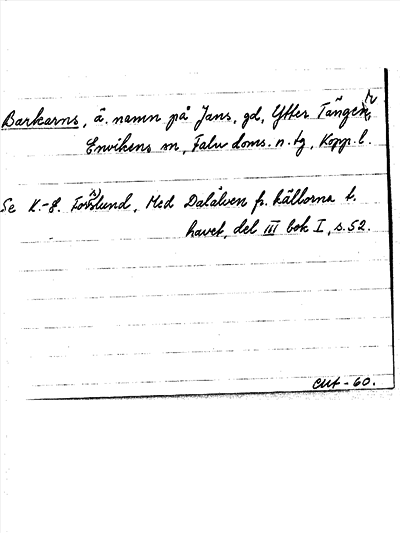 Barkarns, ä. namn på Jans, gd, Ytter Tänger,
Envikens sn, Falu doms. n. tg, Kopp. l.
Se K.-E. Forsslund, Med Dalälven fr. källorna t.
havet, del III bok I, s. 52.
-60.